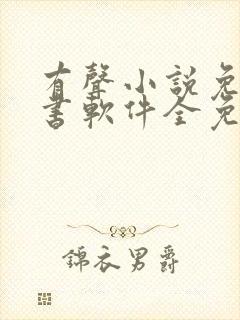 有聲小説免
書軟件全免
錦衣男爵